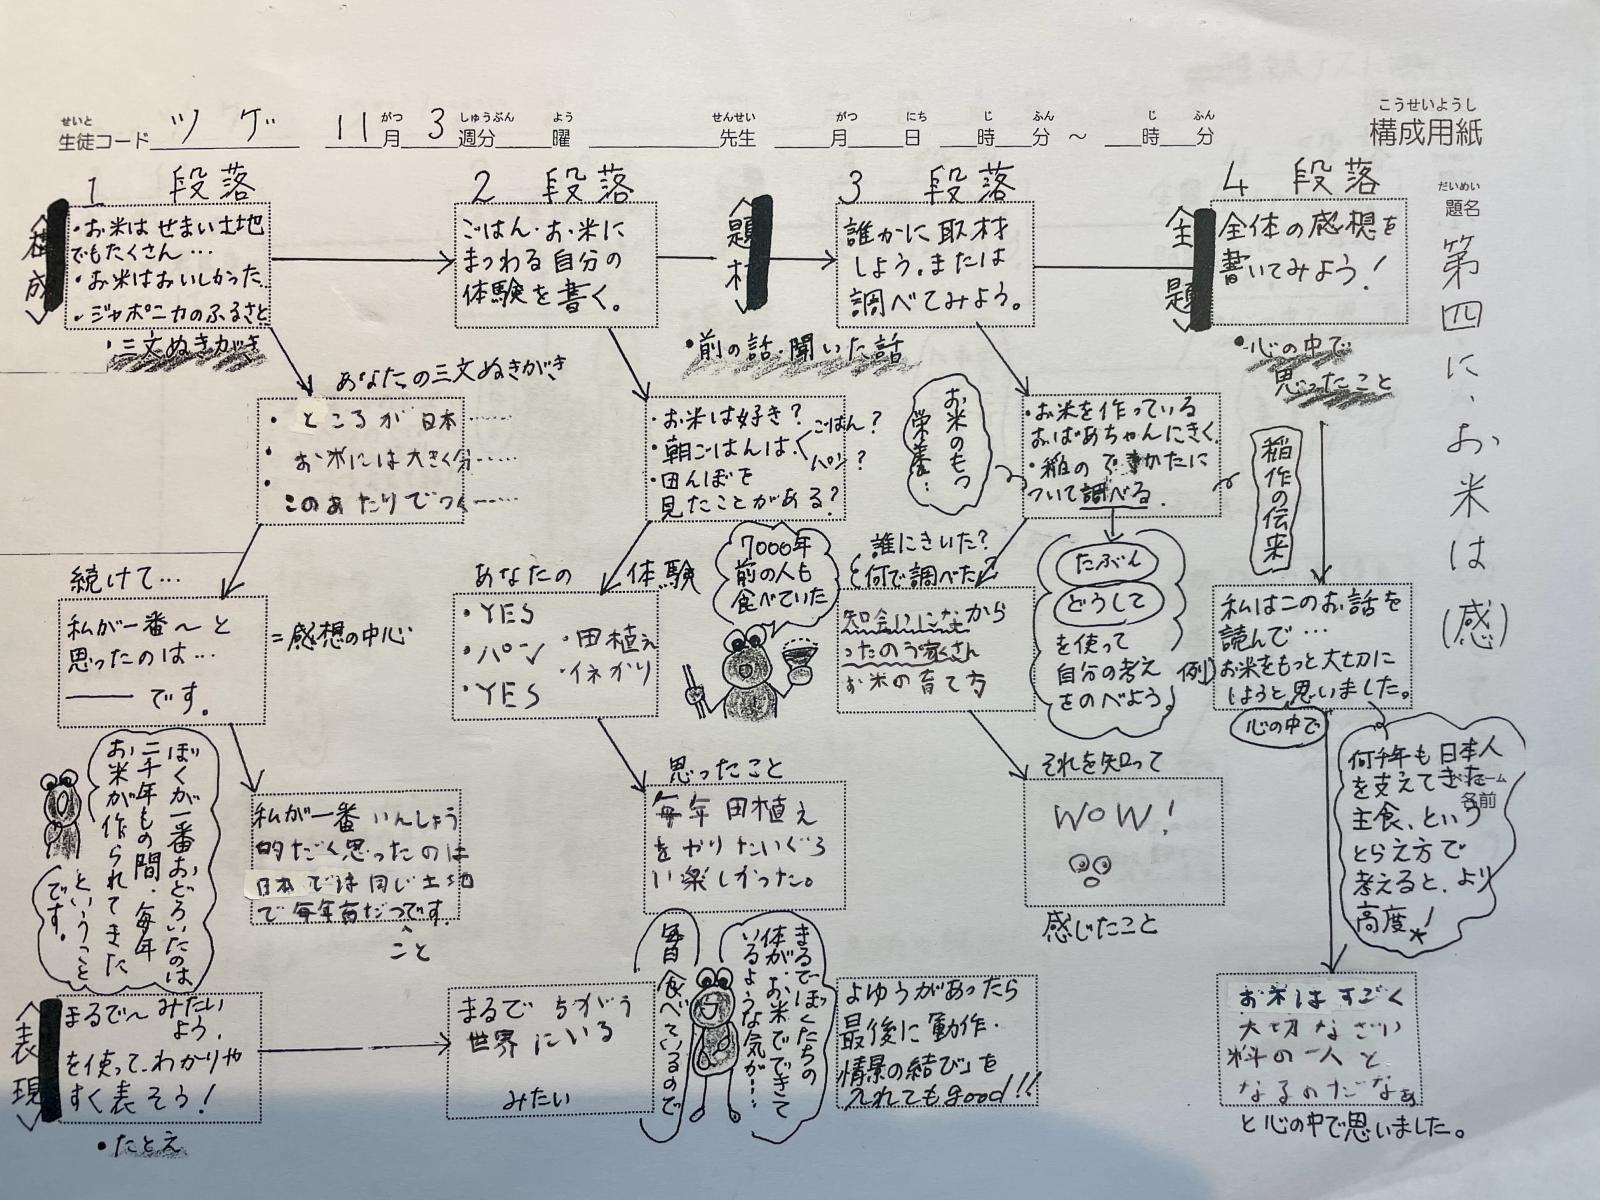 こうせいようし
構成用紙
せいと がつ しゅうぶん よう せんせい がつ にち じ ふん じ ふん
生徒コード ツゲ 11月 3週分 曜 先生 月 日 時 分 ～ 時 分
だいめい
題名
第四に、お米は(感)
名前
1 段落
構成
・お米はせまい土地
でもたくさん…
・お米はおいしかった.
・ジャポニカのふるさと
・三文ぬきがき
あなたの三文ぬきがき
・ところが日本……
・お米には大きく分……
・このあたりでつく……
続けて…
私が一番～と
思ったのは…
―― です。
=感想の中心
ぼくが一番おどろいたのは
二千年もの間、毎年
お米が作られてきた
ということ
です。
私が一番いんしょう
的だく思ったのは
日本では同じ土地
で毎年育だつです。
こと
表現
まるで～みたい
よう.
を使って、わかりや
すく表そう!
・たとえ
まるでちがう
世界にいる
みたい
2 段落
ごはん・お米に
まつわる自分の
体験を書く。
・お米は好き?
・朝ごはんは、ごはん?
パン?
・田んぼを
見たことがある?
あなたの体験
・YES
・パン
・YES
・田植え
・イネかり
7000年
前の人も
食べていた
思ったこと
毎年田植え
をやりたいぐら
い楽しかった。
毎日食べているので
まるでぼくたちの
体が、お米でできて
いるような気が…
題材
・前の話・聞いた話
3 段落
誰かに取材
しよう。または
調べてみよう。
お米のもつ
栄養…
・お米を作っている
おばあちゃんにきく.
・稲のできかたに
ついて調べる.
稲作の伝来
誰にきいた?
何で調べた?
から
ったのう家さん
お米の育て方
たぶん
どうして
を使って
自分の考え
をのべよう。
それを知って
WOW!
感じたこと
よゆうがあったら
最後に動作・
情景の結び」を
入れてもgood!!
主題
4 段落
全体の感想を
書いてみよう!
・心の中で
思ったこと
例)
私はこのお話を
読んで…
お米をもっと大切に
しようと思いました。
心の中で
何千年も日本人
を支えてきた
主食、という
とらえ方で
考えると、より
高度!
お米はすごく
大切なざい
料の一人と
なるのだなぁ
と心の中で思いました。